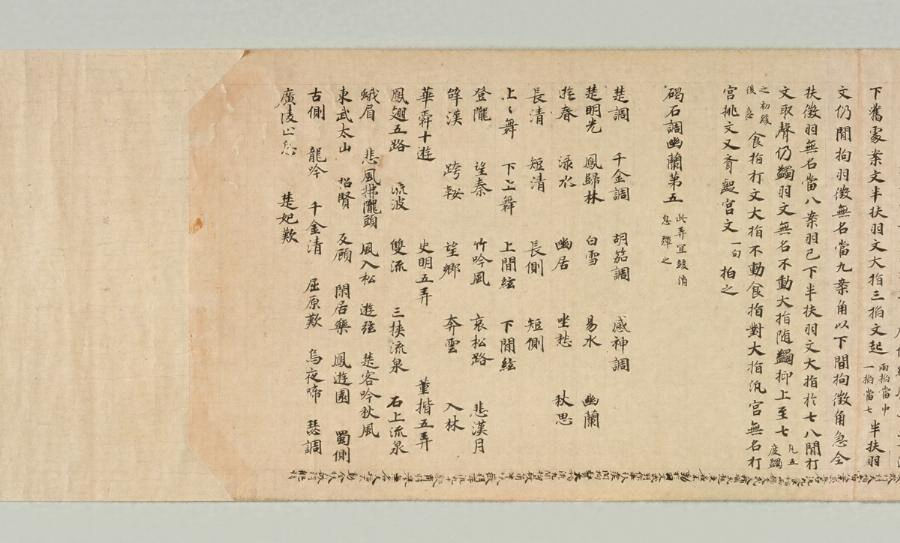 下舊處案文半扶羽文大指三掐文起兩掐當中一掐當七半扶羽
文仍間拘羽徵無名當九案角以下間拘徵角急全
扶徵羽無名當八案羽已下半扶羽文大指於七八間打
文取聲仍蠲羽文無名不動大指隨蠲抑上至七凡五度蠲
之初緩後急食指打文大指不動食指對大指汎宮無名打
宮挑文又齊撮宮文一句拍之
碣石調幽蘭第五此弄宜緩消息彈之
楚調 千金調 胡笳調 感神調
楚明光 鳳歸林 白雪 易水 幽蘭
遊春 淥水 幽居 坐愁 秋思
長清 短清 長側 短側
上上舞 下上舞 上間絃 下間絃
登隴 望秦 竹吟風 哀松路 悲漢月
辭漢 跨鞍 望鄉 奔雲 入林
華舜十遊 史明五弄 董揩五弄
鳳翅五路 流波 雙流 三挾流泉 石上流泉
娥眉 悲風拂隴頭 風入松 遊弦 楚客吟秋風
東武太山 招賢 反顧 閑居樂 鳳遊園 蜀側
古側 龍吟 千金清 屈原歎 烏夜啼 瑟調
廣陵止息 楚妃歎